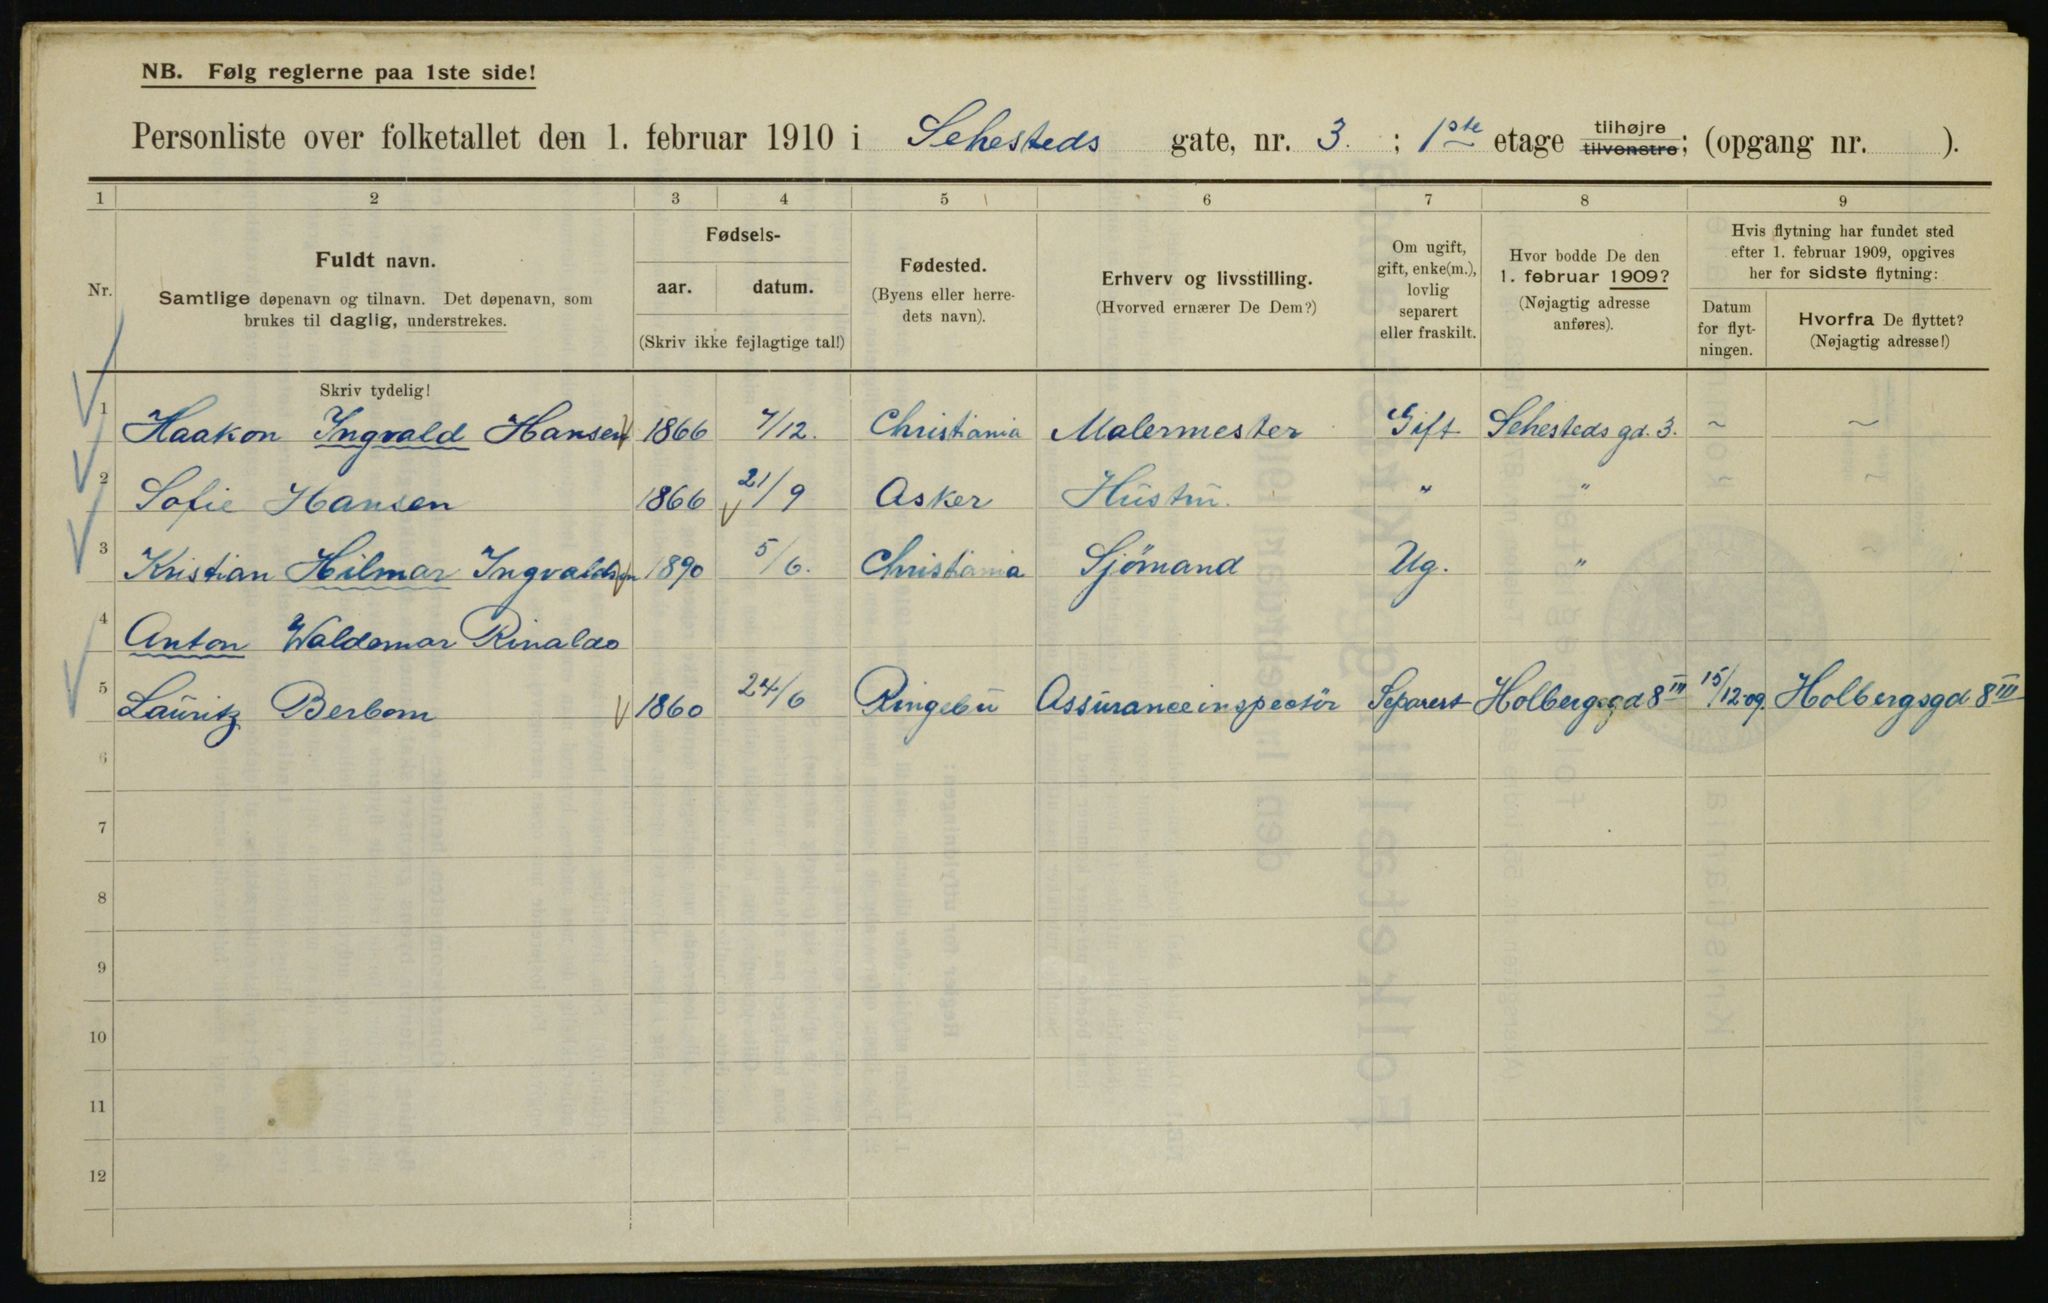 NB. Følg reglerne paa 1ste side!
Personliste over folketallet den 1. februar 1910 i Sehesteds gate, nr. 3. ; 1ste etage tilhøjre tilvenstre; (opgang nr. ).
1 2 3 4 5 6 7 8 9
Nr.
Fuldt navn.
Samtlige døpenavn og tilnavn. Det døpenavn, som
brukes til daglig, understrekes.
Skriv tydelig!
Fødsels-
aar. datum.
(Skriv ikke fejlagtige tal!)
Fødested.
(Byens eller herre-
dets navn).
Erhverv og livsstilling.
(Hvorved ernærer De Dem?)
Om ugift,
gift, enke(m.),
lovlig
separert
eller fraskilt.
Hvor bodde De den
1. februar 1909?
(Nøjagtig adresse
anføres).
Hvis flytning har fundet sted
efter 1. februar 1909, opgives
her for sidste flytning:
Datum
for flyt-
ningen.
Hvorfra De flyttet?
(Nøjagtig adresse!)
1 Haakon Ingvald Hansen 1866 7/12. Christiania Malermester Gift Sehesteds gd. 3. ~ ~
2 Sofie Hansen 1866 21/9 Asker Hustru. " "
3 Kristian Hilmar Ingvaldsen 1890 5/6. Christiania Sjömand Ug. "
4 Anton Waldemar Rinaldo
5 Lauritz Berbom 1860 24/6 Ringebu Assuranceinspectör Separert Holbergsgd 8 III 15/12-09. Holbergsgd 8 III
6
7
8
9
10
11
12